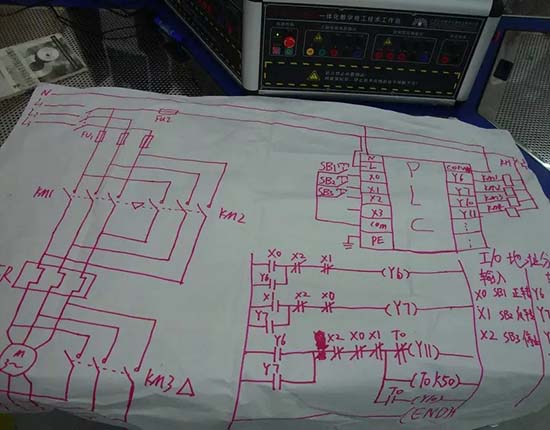 一体化数字电工技术工作岛
N
L1
L2
L3
FU1
FU2
KM1
KM2
FR
M
3~
KM3 △
N
L
SB1 X0
SB2 X1
SB3 X2
X3
com
PE
P
L
C
COM
Y6
Y7
Y10
Y11
KM1
KM2
KM3
X0 X2 X1 (Y6)
Y6
X1 X2 X0 (Y7)
Y7
Y6 X2 X0 X1 T0 (Y11)
Y7
(T0 K50)
T0
(END)
I/O地址分
输入
X0 SB1 正转 Y6
X1 SB2 反转 Y7
X2 SB3 停止 Y